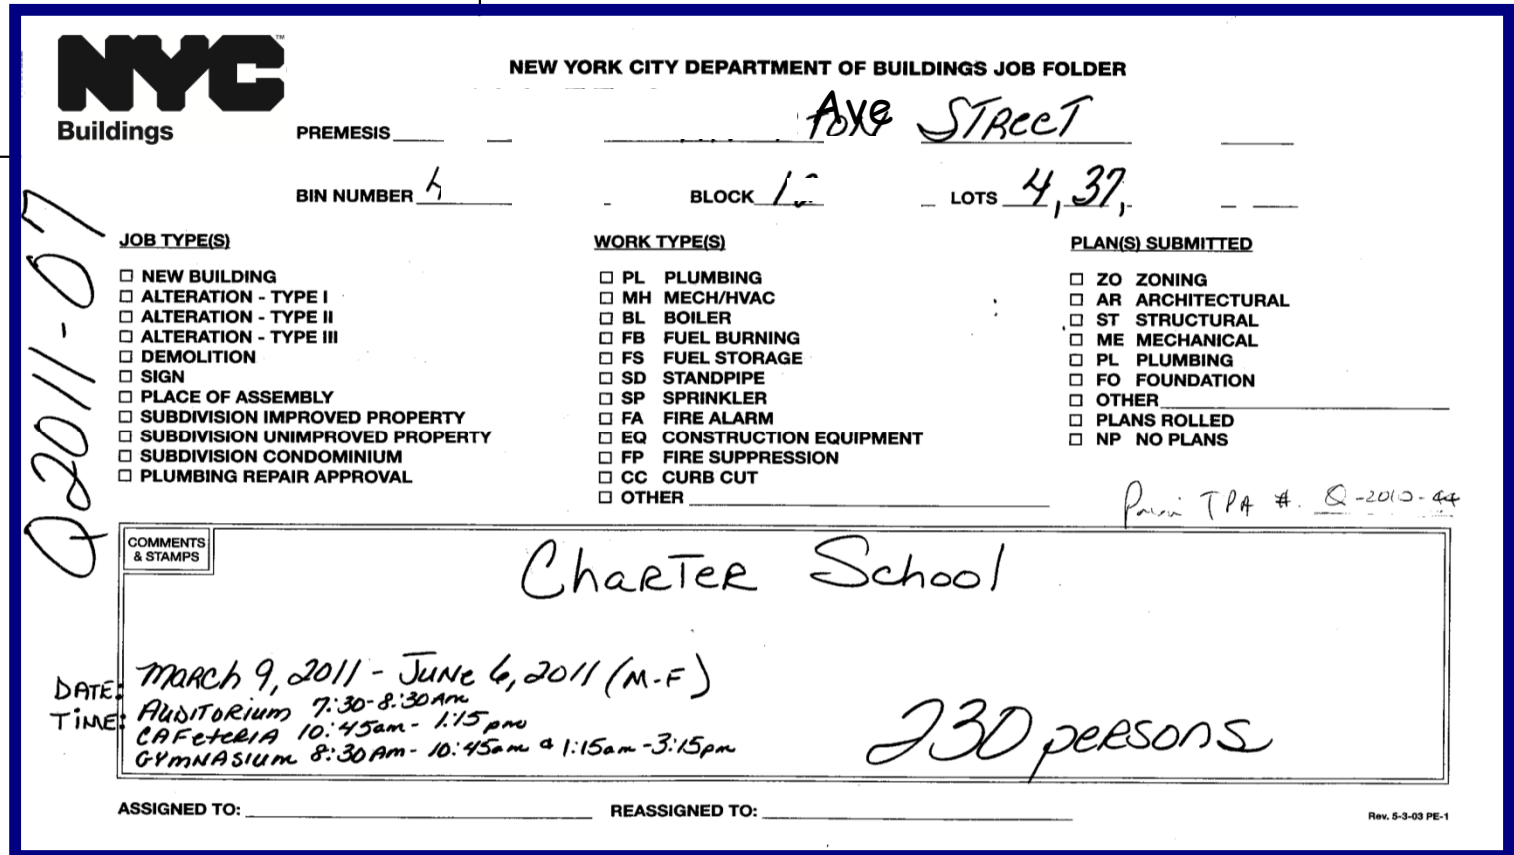 NYC™
Buildings
NEW YORK CITY DEPARTMENT OF BUILDINGS JOB FOLDER
PREMESIS Ave STREET
BIN NUMBER BLOCK LOTS 4, 37,
Q2011-07
JOB TYPE(S)
☐ NEW BUILDING
☐ ALTERATION - TYPE I
☐ ALTERATION - TYPE II
☐ ALTERATION - TYPE III
☐ DEMOLITION
☐ SIGN
☐ PLACE OF ASSEMBLY
☐ SUBDIVISION IMPROVED PROPERTY
☐ SUBDIVISION UNIMPROVED PROPERTY
☐ SUBDIVISION CONDOMINIUM
☐ PLUMBING REPAIR APPROVAL
WORK TYPE(S)
☐ PL PLUMBING
☐ MH MECH/HVAC
☐ BL BOILER
☐ FB FUEL BURNING
☐ FS FUEL STORAGE
☐ SD STANDPIPE
☐ SP SPRINKLER
☐ FA FIRE ALARM
☐ EQ CONSTRUCTION EQUIPMENT
☐ FP FIRE SUPPRESSION
☐ CC CURB CUT
☐ OTHER
PLAN(S) SUBMITTED
☐ ZO ZONING
☐ AR ARCHITECTURAL
☐ ST STRUCTURAL
☐ ME MECHANICAL
☐ PL PLUMBING
☐ FO FOUNDATION
☐ OTHER
☐ PLANS ROLLED
☐ NP NO PLANS
TPA #. Q-2010-44
COMMENTS
& STAMPS
CHARTER School
DATE: MARCH 9, 2011 - JUNE 6, 2011 (M-F)
TIME: AUDITORIUM 7:30-8:30Am
CAFETERIA 10:45am - 1:15pm
GYMNASIUM 8:30Am - 10:45am & 1:15am -3:15pm
230 persons
ASSIGNED TO: REASSIGNED TO:
Rev. 5-3-03 PE-1